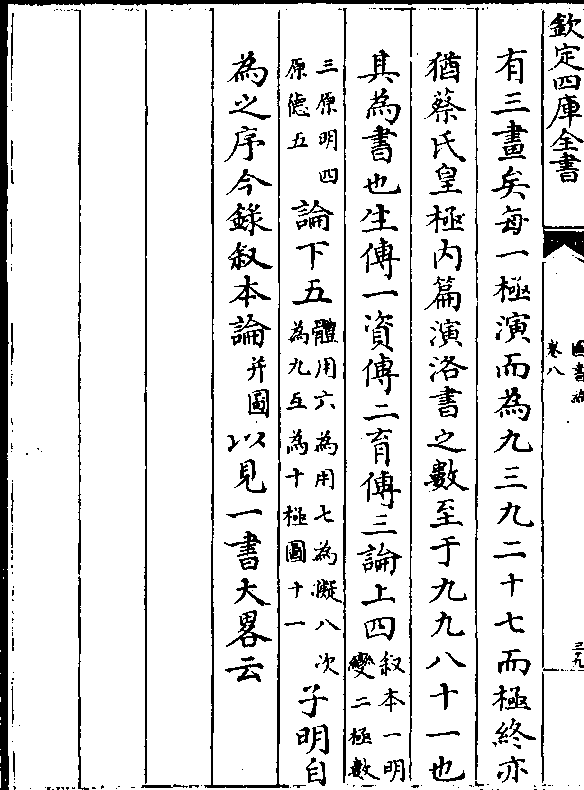 欽定四庫全書
卷八
有三畫矣每一極演而為九三九二十七而極終亦
猶蔡氏皇極內篇演洛書之數至于九九八十一也
其為書也生傳一資傳二育傳三論上四叙本一明變二極數
三原明四原德五論下五體用六為用七為擬八次為九互為十極圖十一子明自
為之序今錄叙本論并圖以見一書大畧云